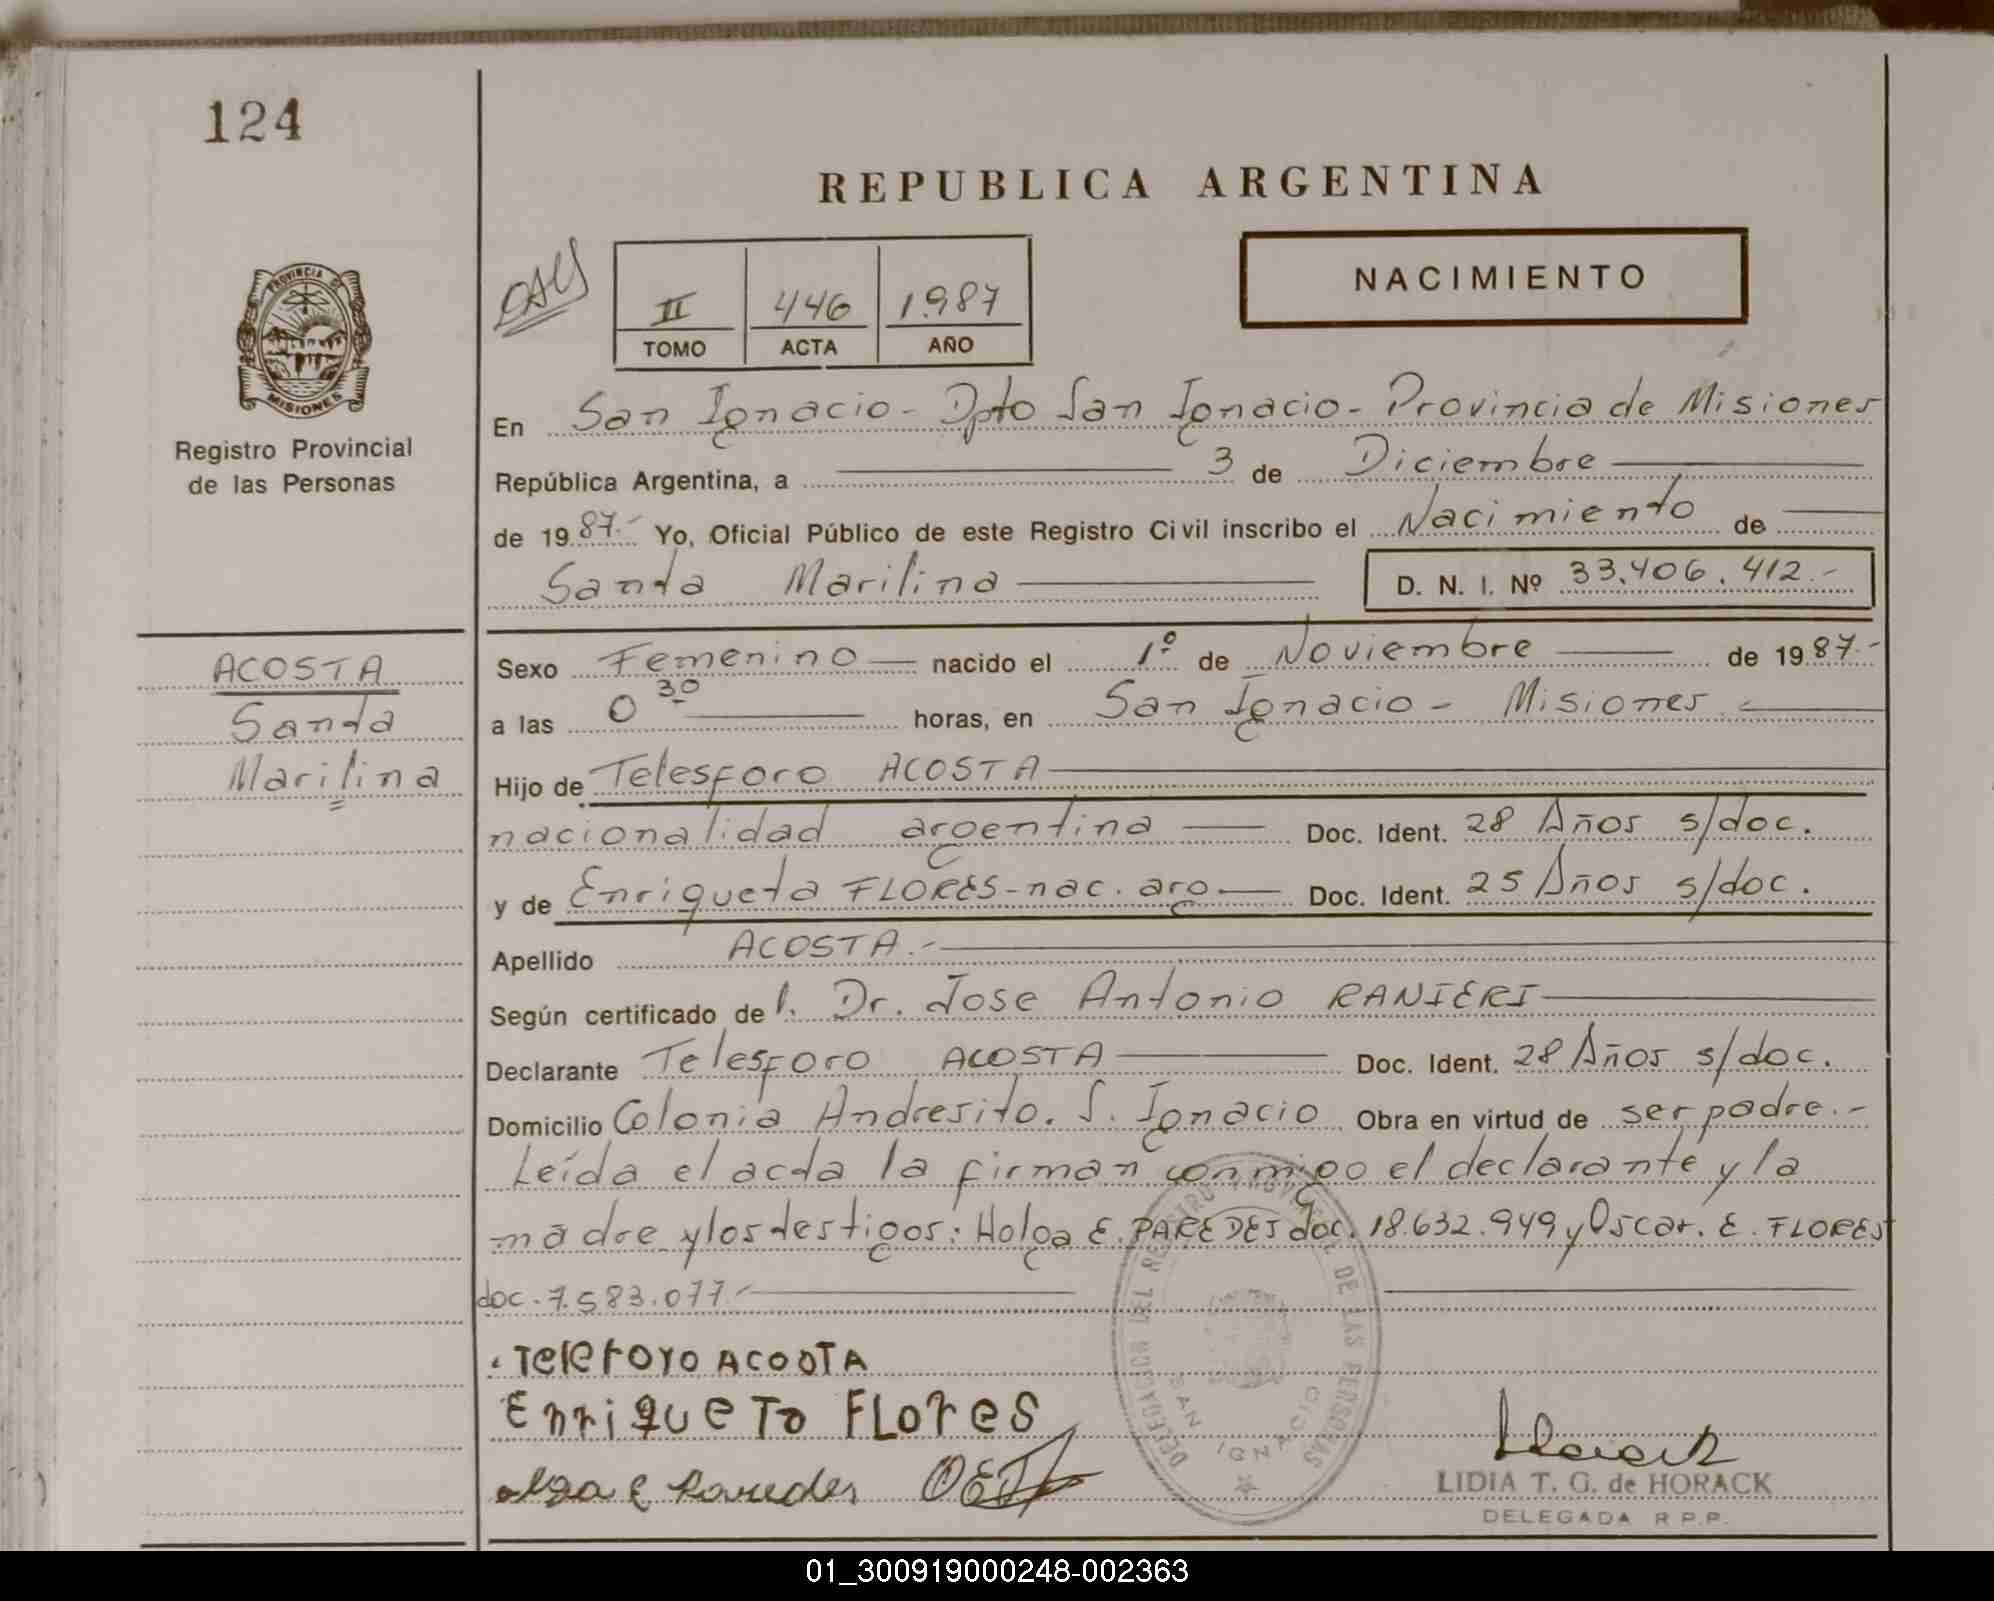 124
REPUBLICA ARGENTINA
NACIMIENTO
II 446 1987
TOMO ACTA AÑO
PROVINCIA DE MISIONES
Registro Provincial
de las Personas
En San Ignacio - Dpto San Ignacio - Provincia de Misiones
República Argentina, a 3 de Diciembre
de 1987.- Yo, Oficial Público de este Registro Civil inscribo el Nacimiento de
Santa Marilina D. N. I. Nº 33.406.412.-
ACOSTA
Santa
Marilina
Sexo Femenino nacido el 1º de Noviembre de 1987.-
a las 0 30 horas, en San Ignacio - Misiones.-
Hijo de Telesforo ACOSTA
nacionalidad argentina Doc. Ident. 28 Años s/doc.
y de Enriqueta FLORES - nac. arg. Doc. Ident. 25 Años s/doc.
Apellido ACOSTA.-
Según certificado del. Dr. Jose Antonio RANIERI
Declarante Telesforo ACOSTA Doc. Ident. 28 Años s/doc.
Domicilio Colonia Andresito. S. Ignacio Obra en virtud de ser padre.-
Leída el acta la firman conmigo el declarante y la
madre y los testigos: Holga E. PAREDES doc. 18.632.949 y Oscar. E. FLORES
doc. 7.583.077.-
TeleForo ACOOTA
EnriqueTa FLores
olga e Paredes
DELEGACION DEL REGISTRO PROVINCIAL DE LAS PERSONAS
SAN IGNACIO
Horack
LIDIA T. G. de HORACK
DELEGADA R.P.P.
01_300919000248-002363